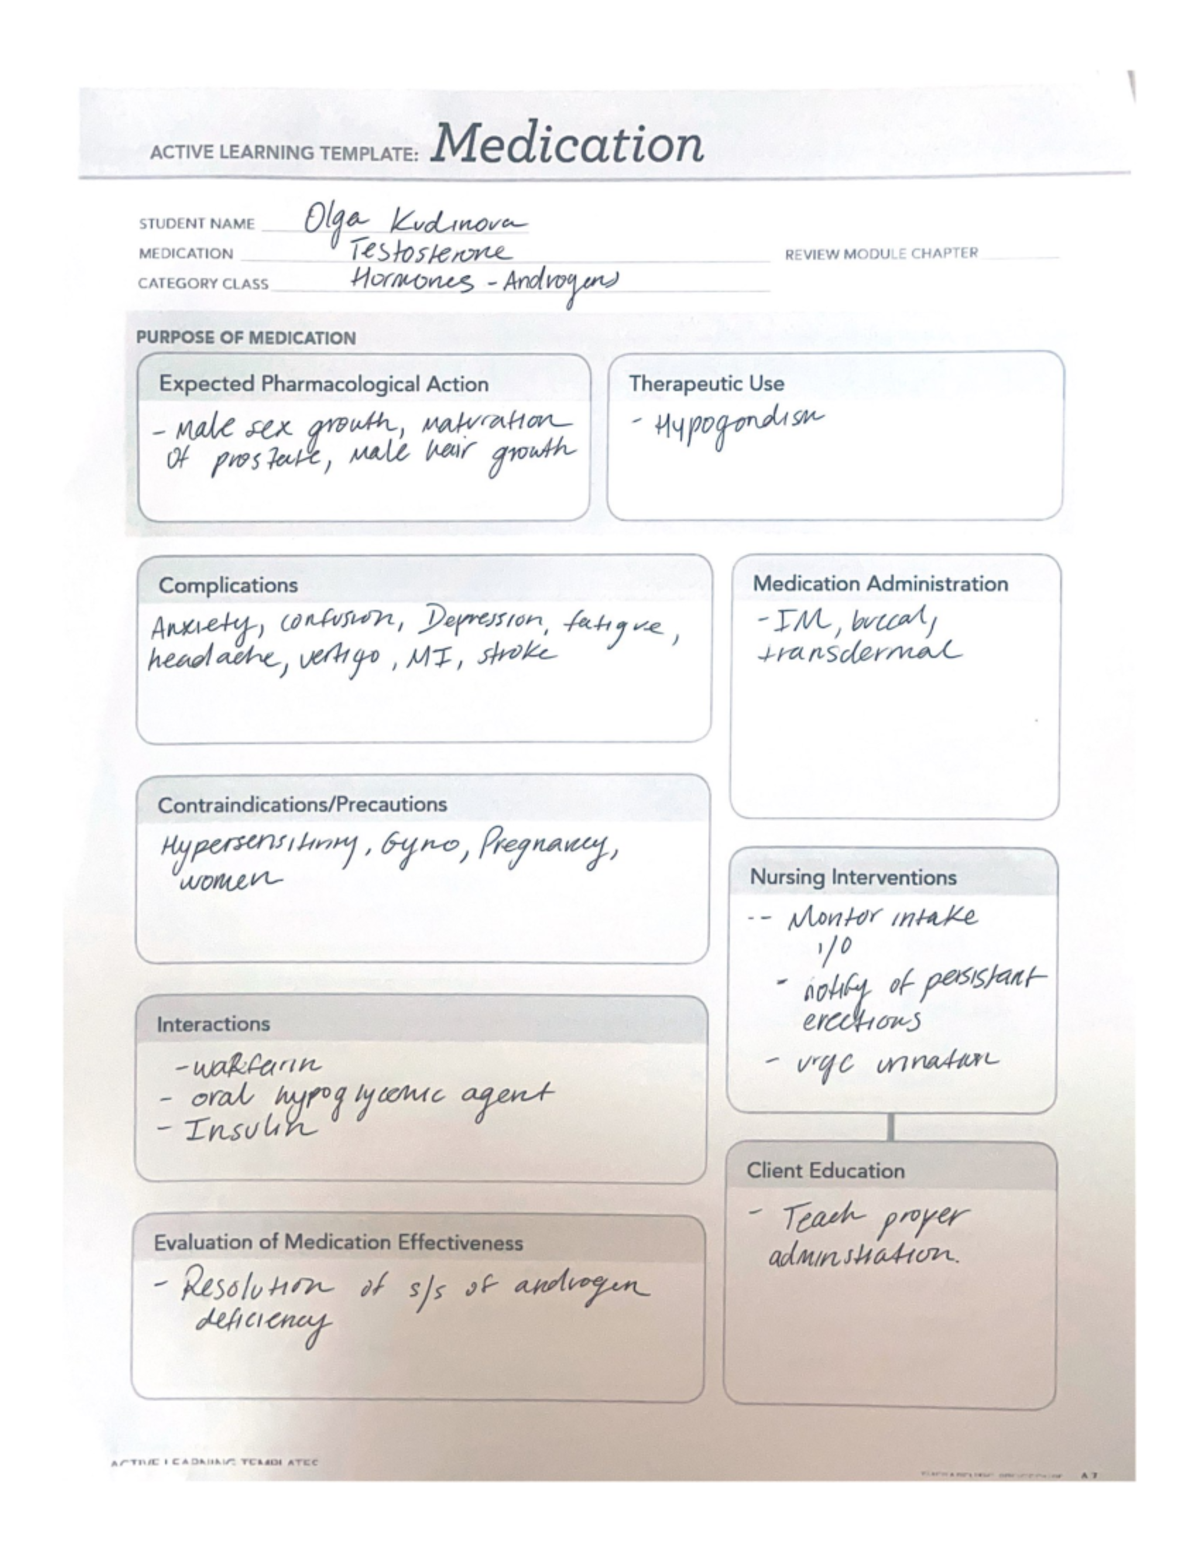 ACTIVE LEARNING TEMPLATE: Medication
STUDENT NAME Olga Kudinova
MEDICATION Testosterone
REVIEW MODULE CHAPTER
CATEGORY CLASS Hormones - Androgens
PURPOSE OF MEDICATION
Expected Pharmacological Action
- Male sex growth, maturation
of prostate, male hair growth
Therapeutic Use
- Hypogondism
Complications
Anxiety, confusion, Depression, fatigue,
headache, vertigo, MI, stroke
Medication Administration
- IM, buccal,
transdermal
Contraindications/Precautions
Hypersensitivity, Gyno, Pregnancy,
women
Nursing Interventions
-- Montor intake
I/O
- notify of persistant
erections
- urgc urination
Interactions
- warfarin
- oral hypoglycemic agent
- Insulin
Client Education
- Teach proper
adminstration.
Evaluation of Medication Effectiveness
- Resolution of s/s of androgen
deficiency
ACTIVE LEARNING TEMPLATES
A7